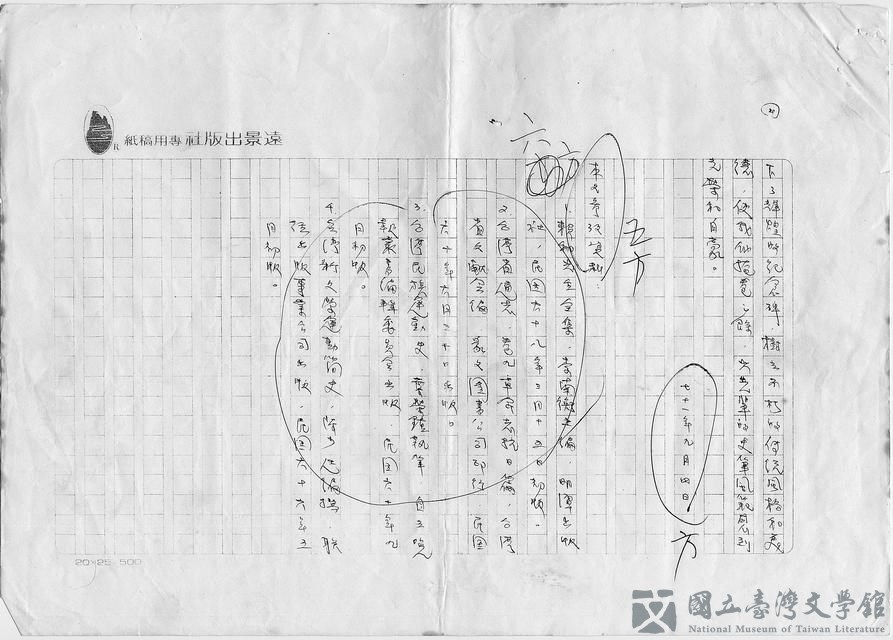 下了輝煌的紀念碑，樹立不朽的傳統風格和美
德，使我們掩卷之餘，為先輩的史筆風範感到
光榮和自豪。
七十一年九月四日
方
五方
六方
本文參考資料：
1.賴和先生全集，李南衡主編，明潭出版
社，民國六十八年三月十五日初版。
2.台灣省通志，卷九革命志抗日篇，台灣
省文獻會編，眾文圖書公司印行，民國
六十年六月三十日出版。
3.台灣民族運動史，葉榮鐘執筆，自立晚
報叢書編輯委員會出版，民國六十年九
月初版。
4.台灣新文學運動簡史，陳少廷編撰，聯
經出版事業公司出版，民國六十六年五
月初版。
紙稿用專社版出景遠
R
20×25=500
國立臺灣文學館
National Museum of Taiwan Literature